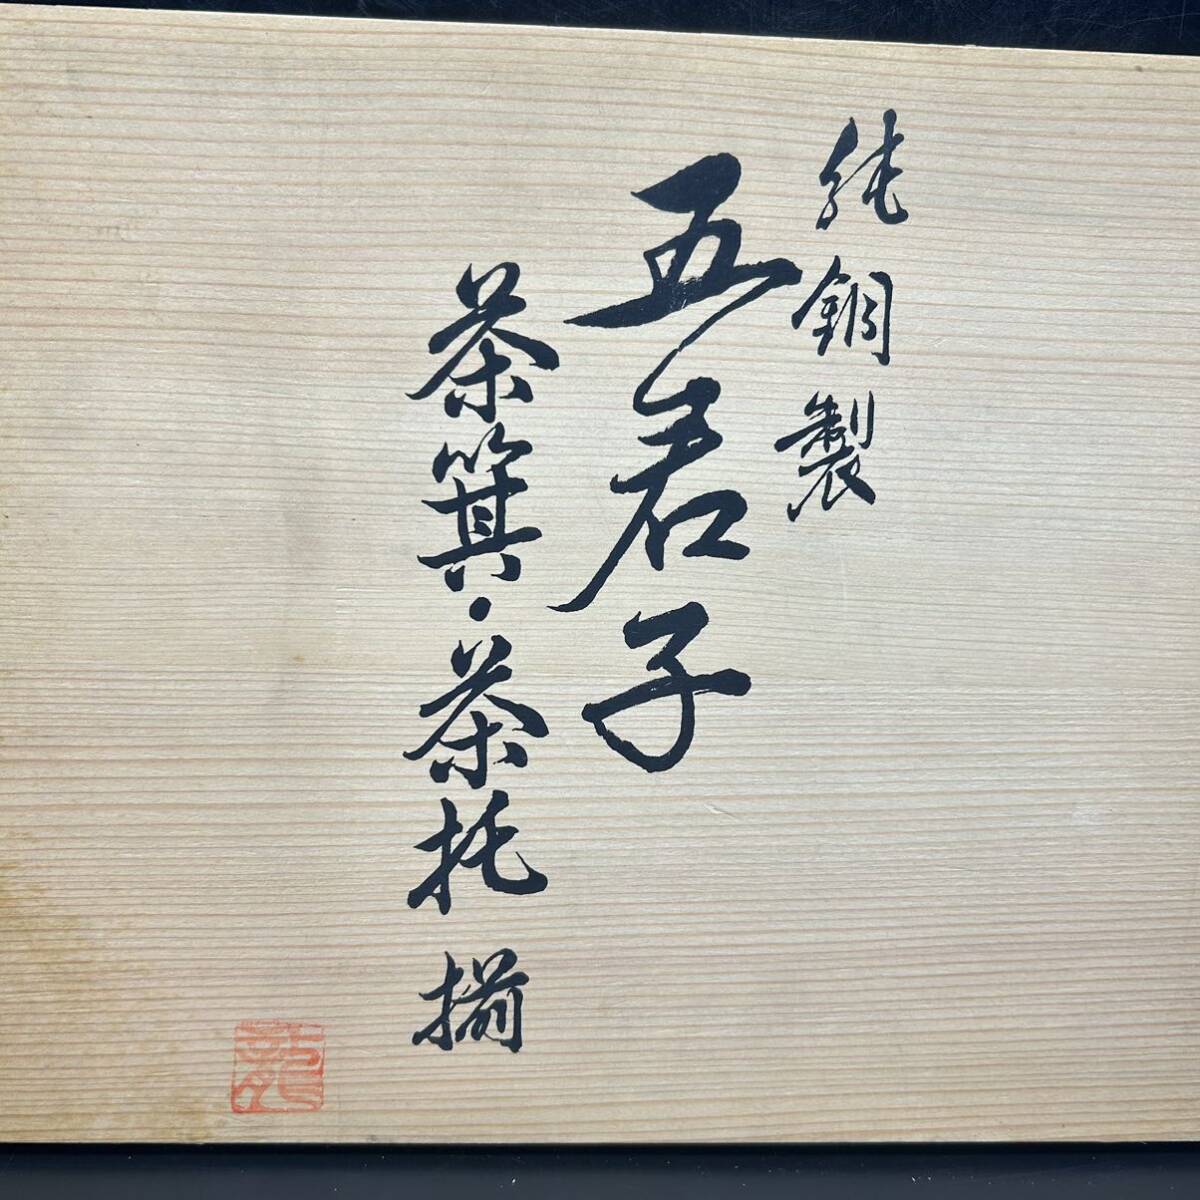 純銅製
五君子
茶箕・茶托 揃
龍